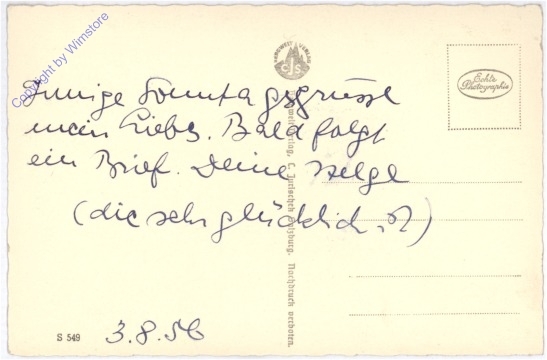 Copyright by Wimstore
RANDWEST VERLAG
CJS
Echte
Photographie
Innige Sonntagsgrüsse
mein Liebes. Bald folgt
ein Brief. Deine Helge
(die sehr glücklich ist)
Verlag, C. Jurischek Salzburg. Nachdruck verboten.
S 549
3.8.56